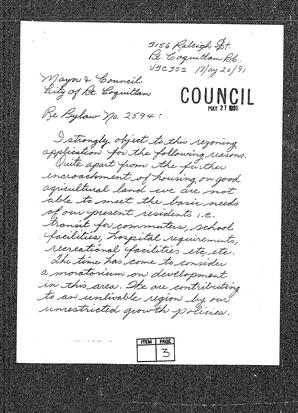 3156 Raleigh St.
Pt Coquitlam B.C.
May 20/91
Mayor & Council
City of Pt Coquitlam
COUNCIL
MAY 27 1991
Re Bylaw No. 2594:
I strongly object to this rezoning
application for the following reasons.
Quite apart from the further
encroachment of housing on good
agricultural land we are not
able to meet the basic needs
of our present residents i.e.
transit for commuters, school
facilities, hospital requirements,
recreational facilities etc. etc.
The time has come to consider
a moratorium on development
in this area. We are contributing
to an unlivable region by our
unrestricted growth policies.
ITEM PAGE
3